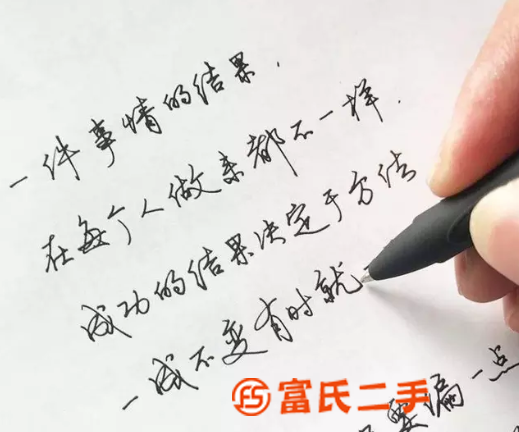 一件事情的结果.
在每个人做来都不一样.
成功的结果决定于方法
一成不变有时就
要偏一点
富氏二手